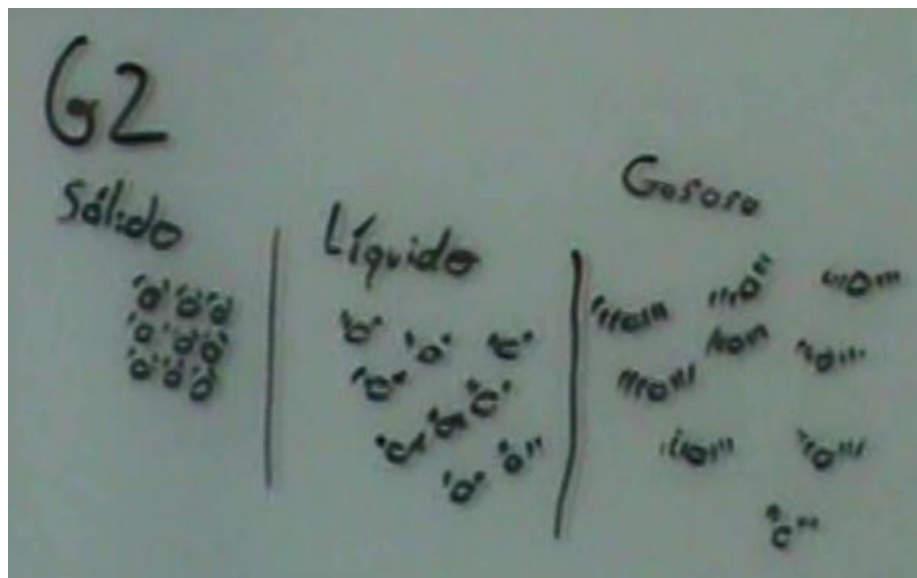 G2
Sólido
Líquido
Gasoso